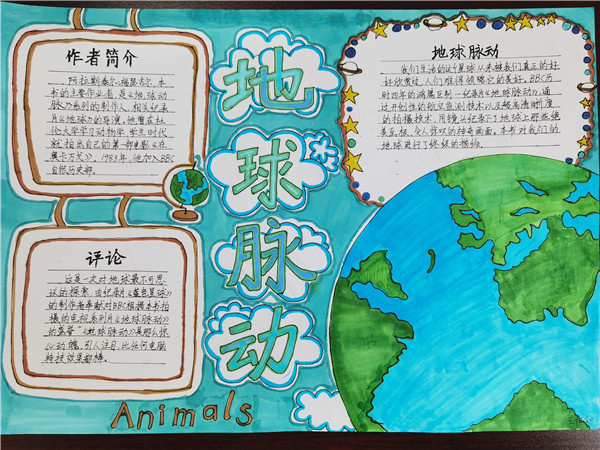 作者简介
阿拉斯泰尔·福瑟吉尔,本
书的主要作者,是《地球动
脉》系列的制作人,相关纪录
片《地球》的导演,他曾在杜
伦大学学习动物学,学生时代
就拍出自己的第一部电影《在
奥卡万戈》,1983年,他加入BBC
自然历史部。
评论
这是一次对地球最不可思
议的探索,由纪录片《蓝色星球》
的制作者奉献对BBC根据本书拍
摄的电视系列片《地球脉动》
的盛誉“《地球脉动》是那么惊
心动魄,引人注目,比任何电脑
特技效果都棒。
地球脉动
地球脉动
我们生活的这个星球从未被我们真正的好
好欣赏过,人们难得领略它的美好。BBC历
时四年的鸿篇巨制—纪录片《地球脉动》,通
过开创性的航空监测技术以及超高清晰度
的拍摄技术,用镜头纪录了地球上那些绝
美至极、令人惊叹的神奇画面。本书对我们的
地球进行了终级的描绘。
Animals